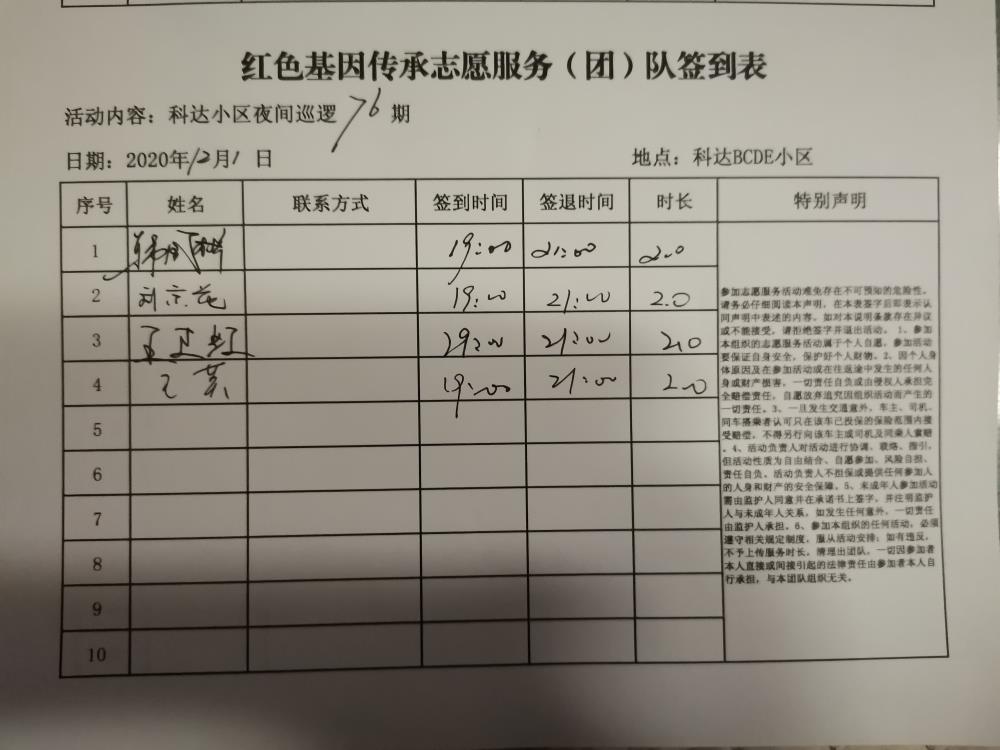 红色基因传承志愿服务（团）队签到表
活动内容：科达小区夜间巡逻 76 期
日期：2020年12月1日 地点：科达BCDE小区
序号 姓名 联系方式 签到时间 签退时间 时长 特别声明
1 19:00 21:00 2.0
2 刘京花 19:00 21:00 2.0
3 王卫红 19:00 21:00 2.0
4 王英 19:00 21:00 2.0
5
6
7
8
9
10
参加志愿服务活动难免存在不可预知的危险性。
请务必仔细阅读本声明，在本表签字后即表示认
同声明中表述的内容。如对本说明条款存在异议
或不能接受，请拒绝签字并退出活动。 1、参加
本组织的志愿服务活动属于个人自愿，参加活动
要保证自身安全，保护好个人财物。2、因个人身
体原因及在参加活动或在往返途中发生的任何人
身或财产损害，一切责任自负或由侵权人承担完
全赔偿责任，自愿放弃追究因组织活动而产生的
一切责任。3、一旦发生交通意外，车主、司机、
同车搭乘者认可只在该车已投保的保险范围内接
受赔偿，不得另行向该车主或司机及同乘人索赔
。4、活动负责人对活动进行协调、联络、指引，
但活动性质为自由结合、自愿参加、风险自担、
责任自负。活动负责人不担保或提供任何参加人
的人身和财产的安全保障。5、未成年人参加活动
需由监护人同意并在承诺书上签字，并注明监护
人与未成年人关系，如发生任何意外，一切责任
由监护人承担。6、参加本组织的任何活动，必须
遵守相关规定制度，服从活动安排；如有违反，
不予上传服务时长，清理出团队，一切因参加者
本人直接或间接引起的法律责任由参加者本人自
行承担，与本团队组织无关。